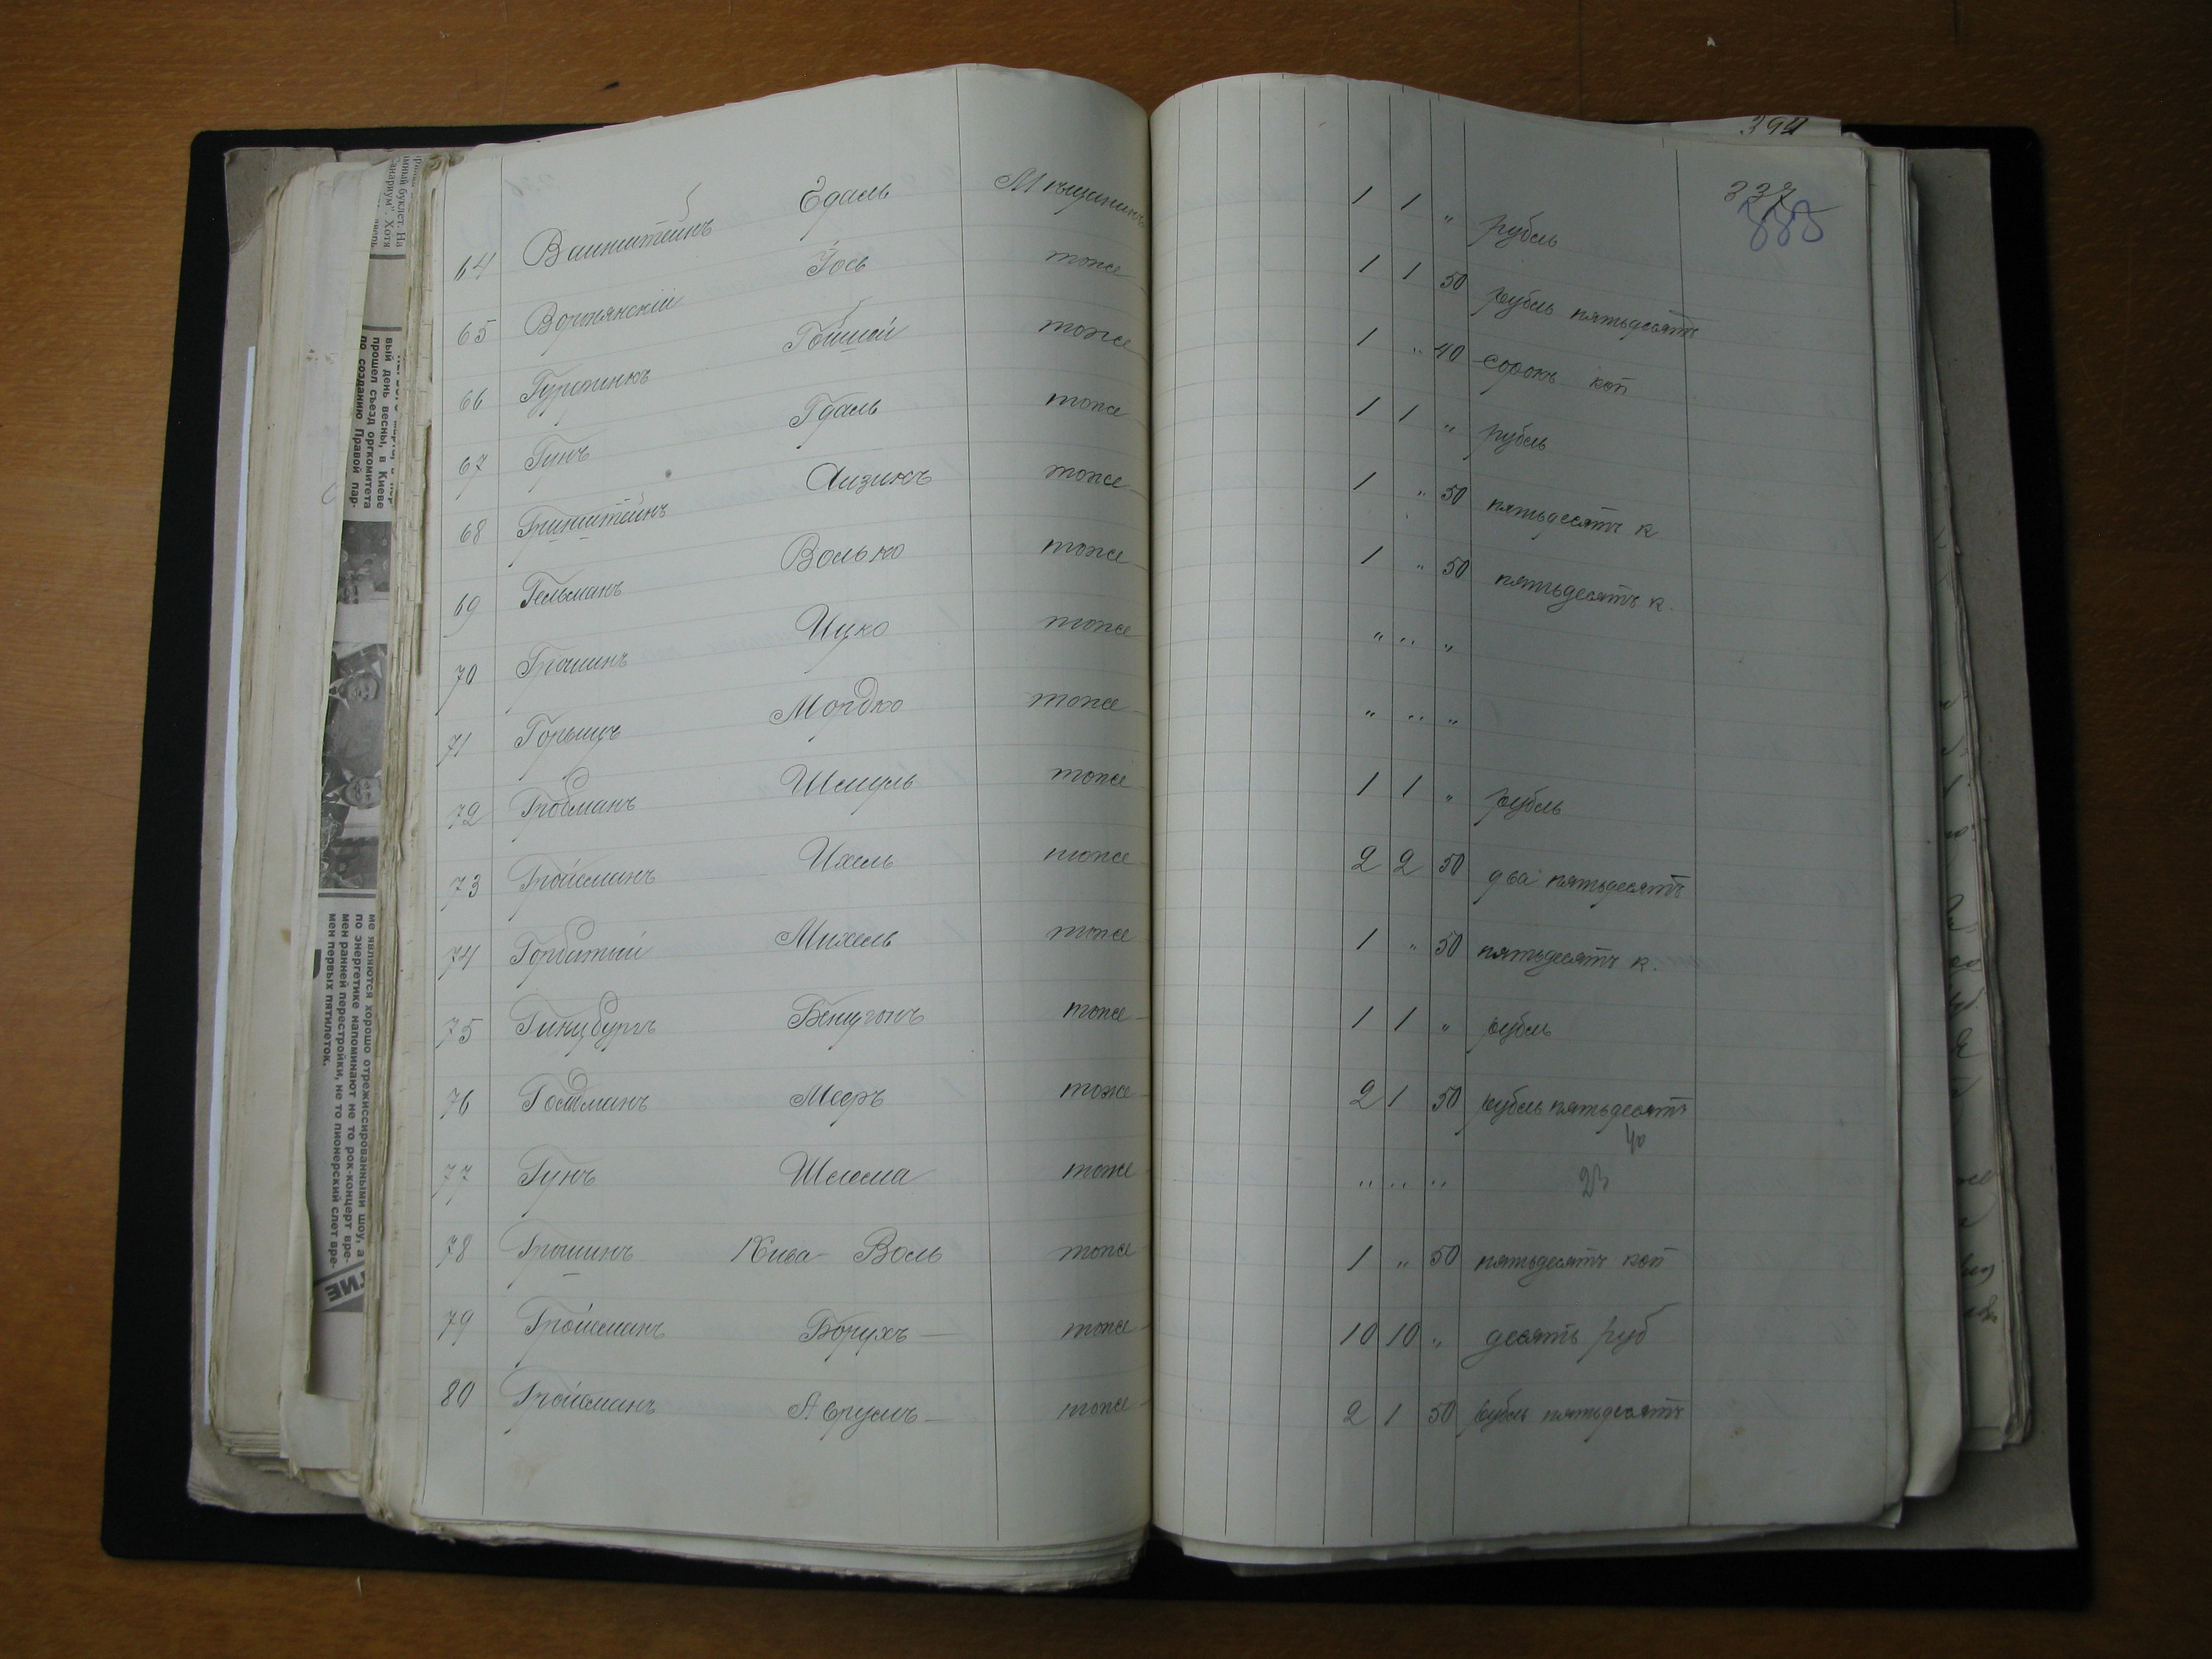 394
337
383
64 Ваинштейнъ Едаль Мѣщанинъ 1 1 " рубль
65 Воронянскій Іось тоже 1 1 50 рубль пятьдесятъ
66 тоже 1 " 40 сорокъ коп
67 Гунъ Гдаль тоже 1 1 " рубль
68 Гринштейнъ Аизикъ тоже 1 " 50 пятьдесятъ к
69 Гельманъ Волько тоже 1 " 50 пятьдесятъ к.
70 Грошинъ Ицко тоже " " "
71 Мордко тоже " " "
72 Гробманъ Шмуль тоже 1 1 " рубль
73 Гройсманъ Ихель тоже 2 2 50 два пятьдесятъ
74 Горбатый Михель тоже 1 " 50 пятьдесятъ к.
75 Гинцбургъ Бенцionъ тоже 1 1 " рубль
76 Гольдманъ Мееръ тоже 2 1 50 рубль пятьдесятъ
40
77 Гунъ Шлема тоже " " " 23
78 Грошинъ Кива Воль тоже 1 " 50 пятьдесятъ коп
79 Гройсманъ Борухъ тоже 10 10 " десять руб
80 Гройсманъ Аврумъ тоже 2 1 50 рубль пятьдесятъ
вый день весны, в Киеве
прошел съезд оргкомитета
по созданию Правой пар-
ме являются хорошо отрежиссированными шоу, а
по энергетике напоминают не то рок-концерт вре-
мен ранней перестройки, не то пионерский слет вре-
мен первых пятилеток.